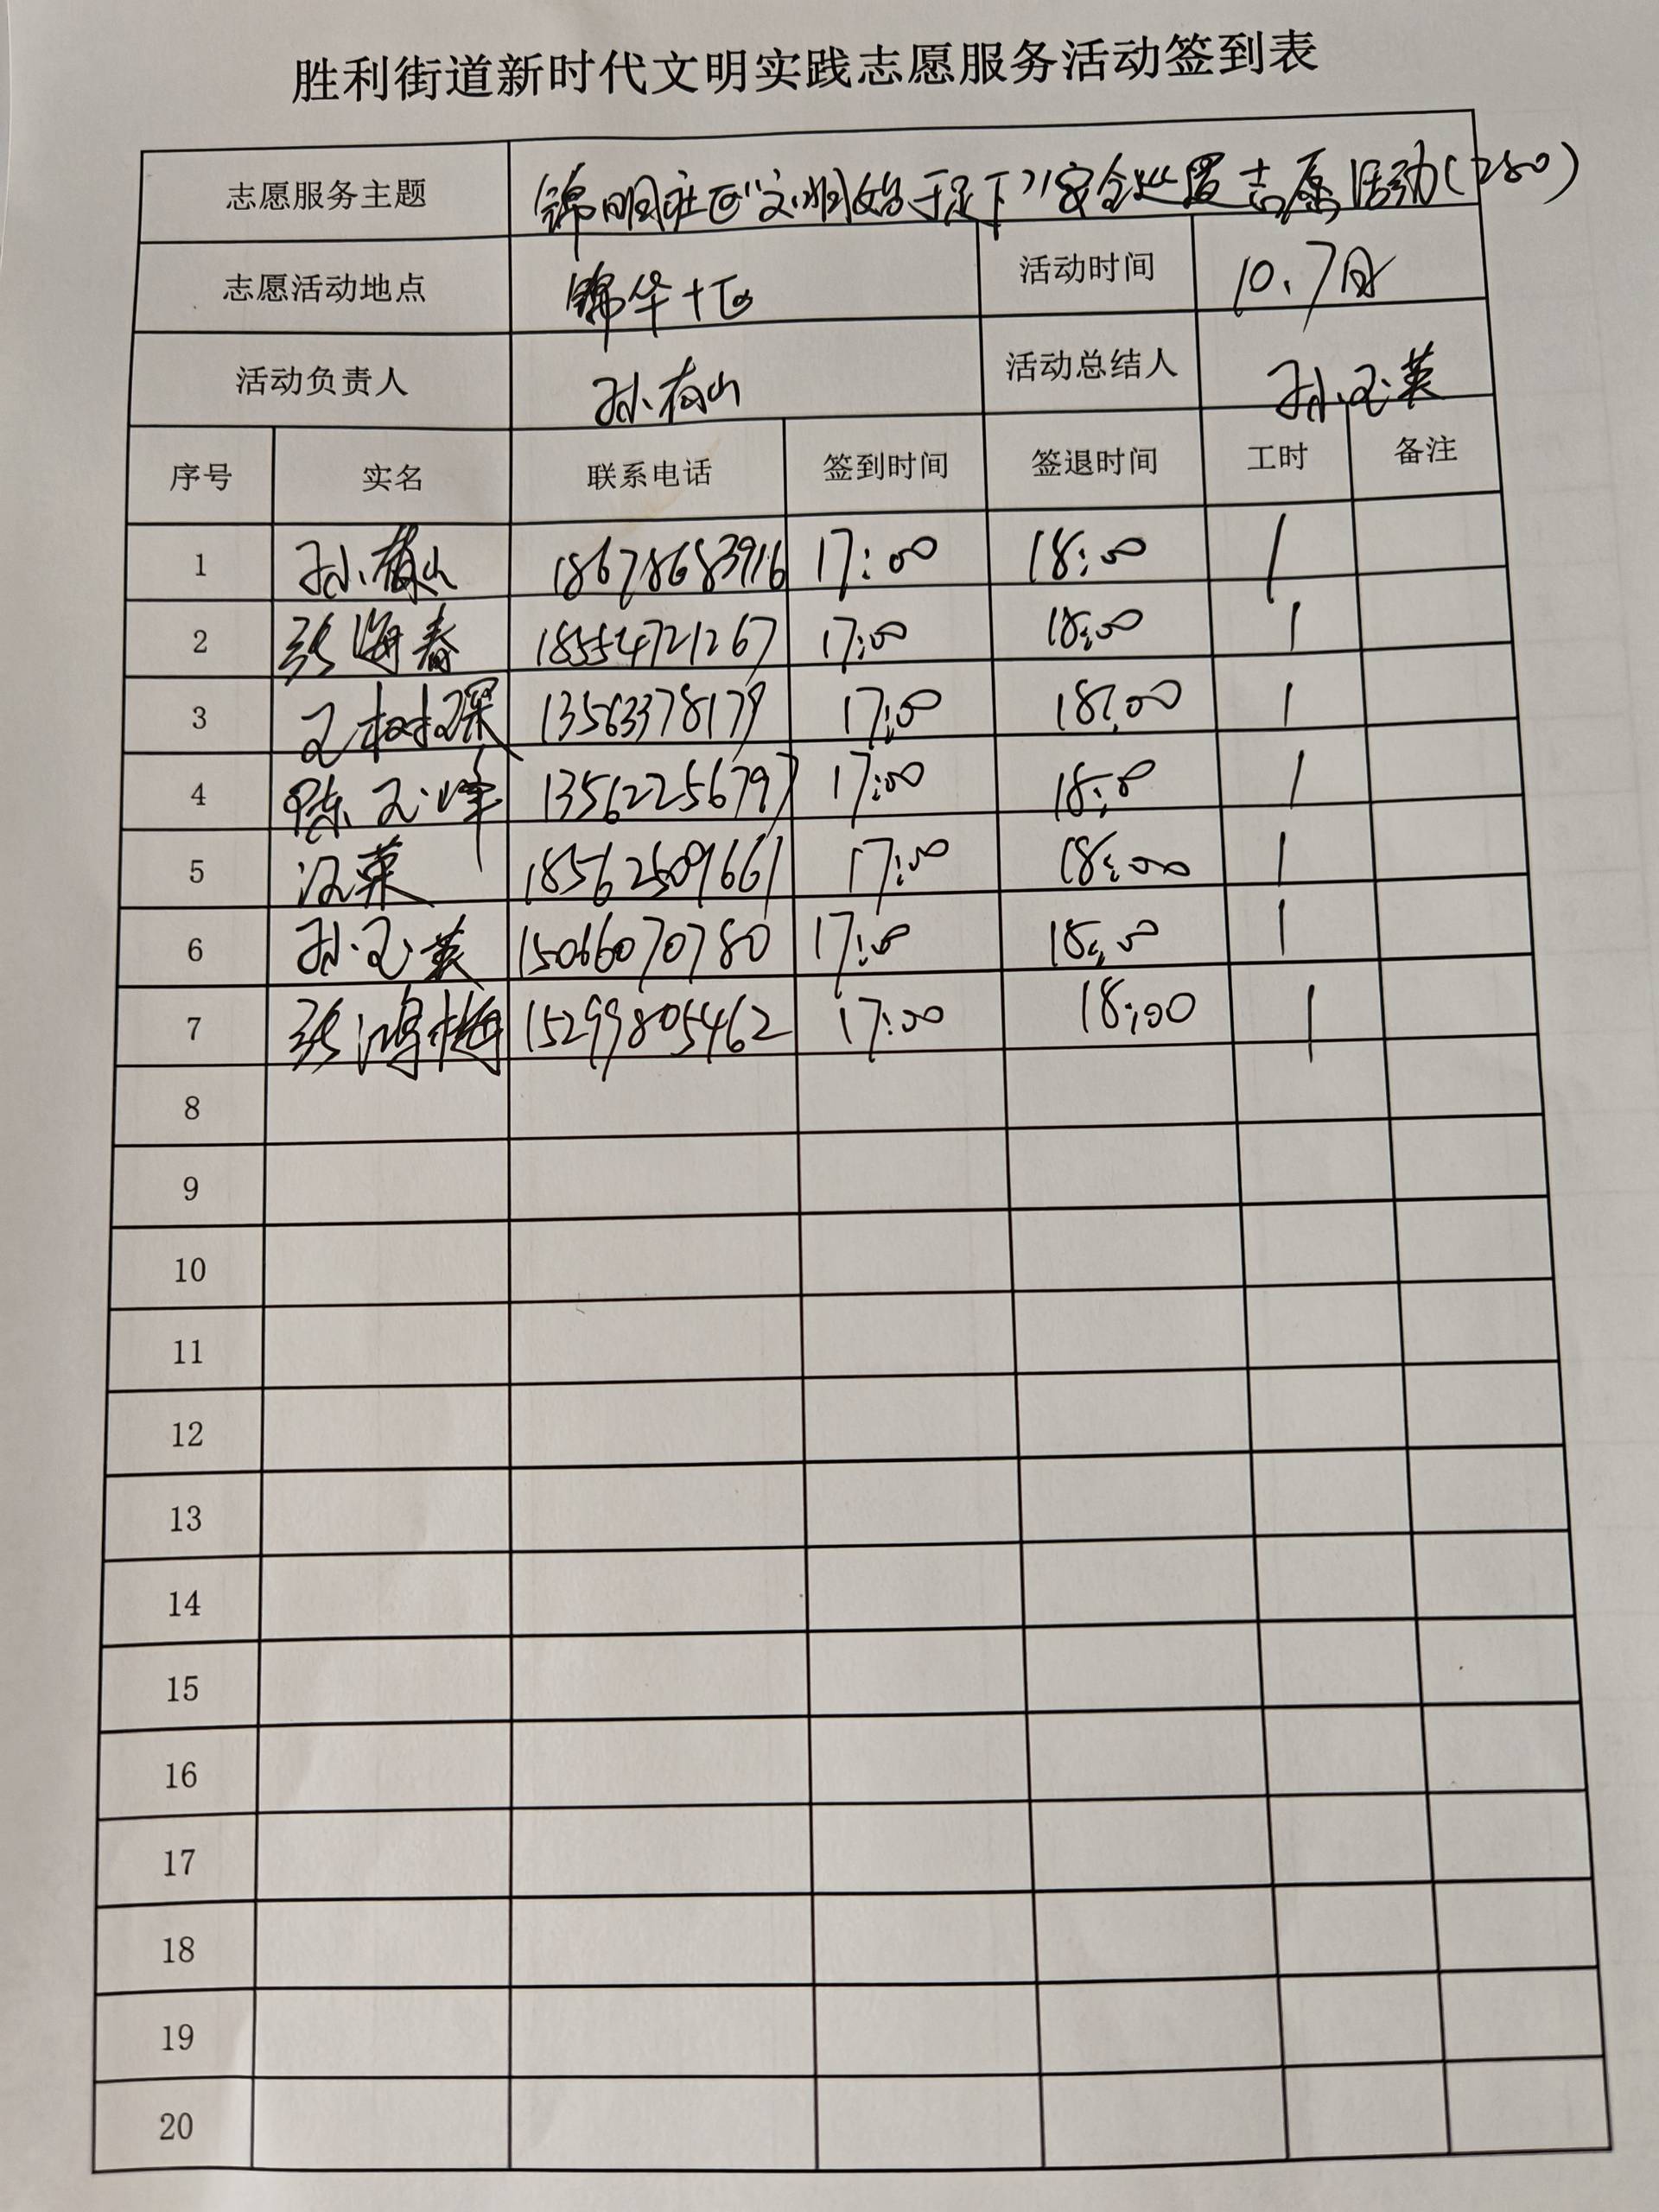 胜利街道新时代文明实践志愿服务活动签到表
志愿服务主题 锦明社区"文明始于足下"安全处置志愿活动(280)
志愿活动地点 锦华十区 活动时间 10.7日
活动负责人 孙 山 活动总结人 孙玉英
序号 实名 联系电话 签到时间 签退时间 工时 备注
1 孙 山 18678683916 17:00 18:00 1
2 张海春 18554721267 17:00 18:00 1
3 王树琛 13563378179 17:00 18:00 1
4 陈玉峰 13562256797 17:00 18:00 1
5 汉荣 18562509661 17:00 18:00 1
6 孙玉英 15066070780 17:00 18:00 1
7 张鸿梅 15299805462 17:00 18:00 1
8
9
10
11
12
13
14
15
16
17
18
19
20